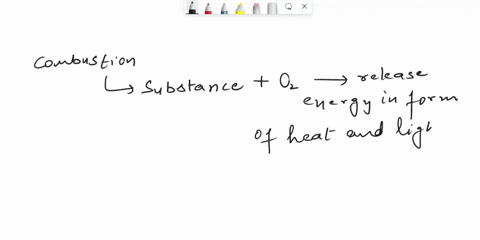 Combustion
↳ Substance + O₂ → release
energy in form
of heat and ligh